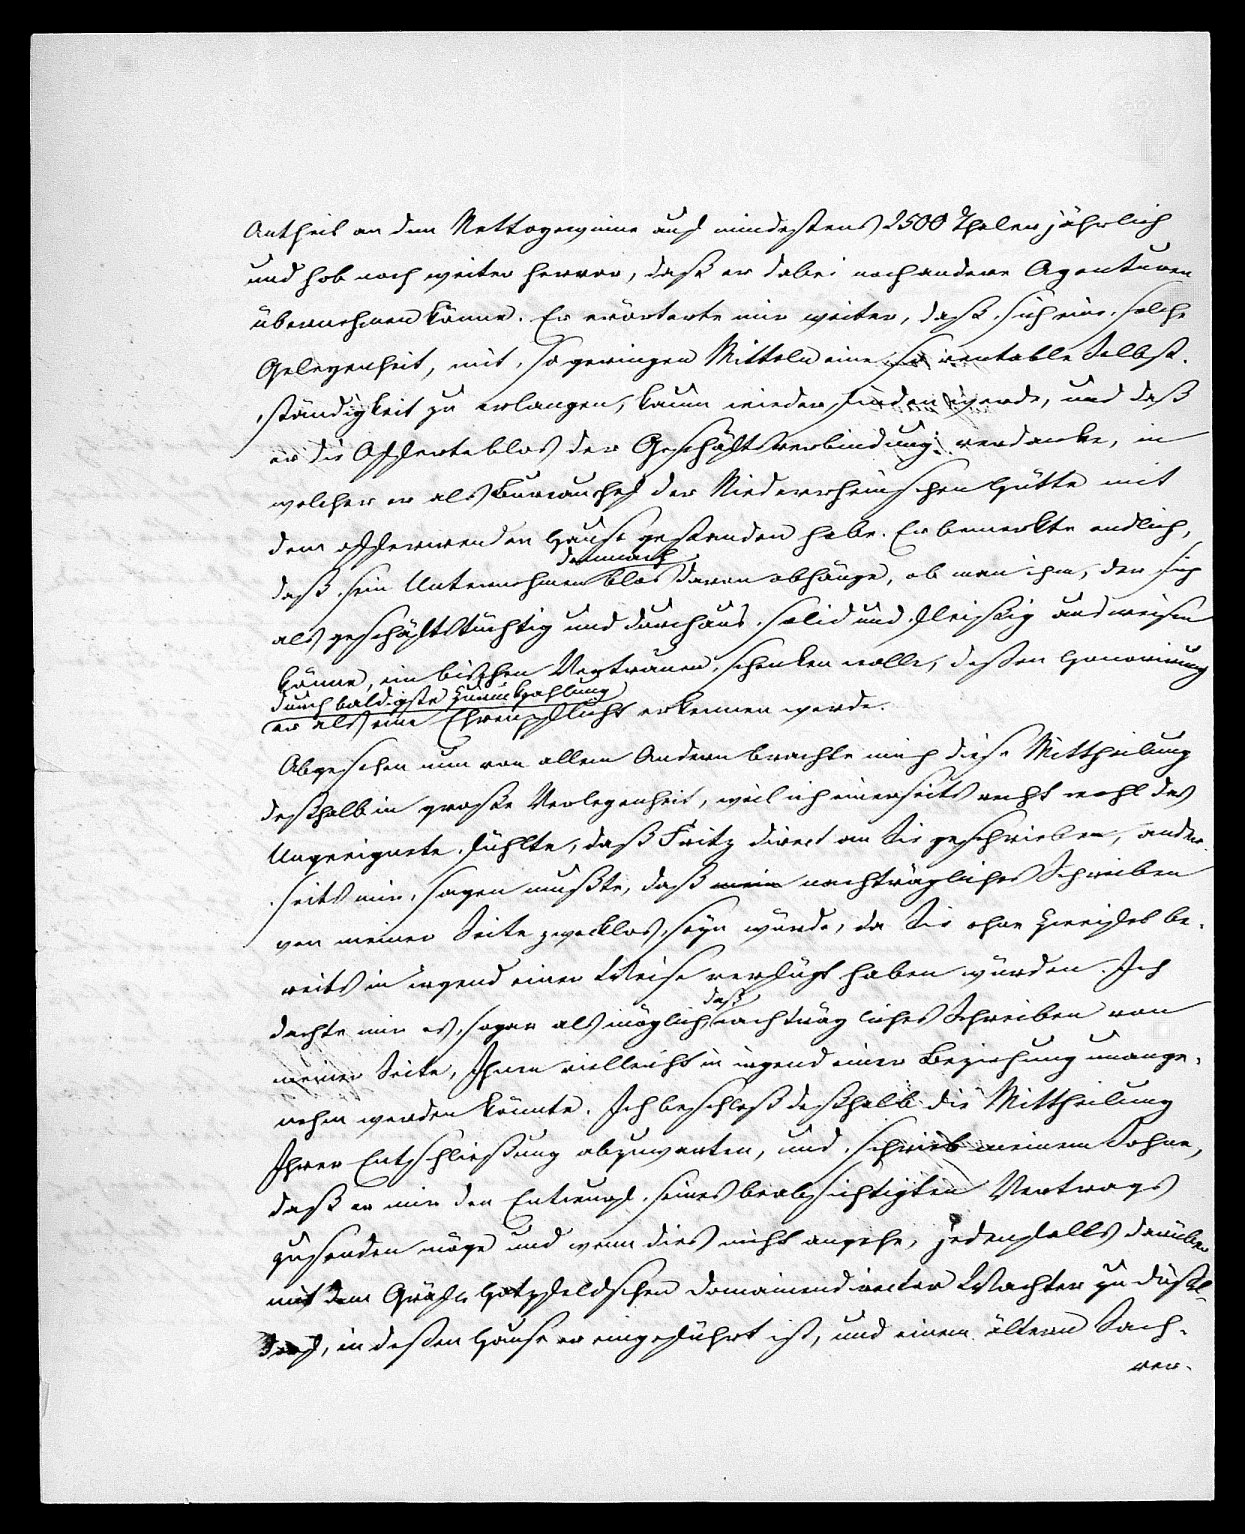 Antheil an dem Nettogewinne auf mindestens 2500 Thaler jährlich
und hob noch weiter hervor, daß er dabei noch andere Agenturen
übernehmen könne. Er erörterte mir weiter, daß sich eine solche
Gelegenheit, mit so geringen Mitteln eine so rentable Selbst-
ständigkeit zu erlangen, kaum wieder finden werde, und daß
er die Offerte blos der Geschäftsverbindung verdanke, in
welcher er als Bureauchef der Niederrheinischen Hütte mit
dem offerirenden Hause gestanden habe. Er bemerkte endlich,
demnach
daß sein Unternehmen blos davon abhänge, ob man ihm, der sich
als geschäftstüchtig und durchaus solid und fleißig ausweisen
könne, ein bischen Vertrauen schenken wolle, deßen Honorirung
durch baldigste Zurückzahlung
er als eine Ehrenpflicht erkennen werde.
Abgesehen nun von allem Andern brachte mich diese Mittheilung
deßhalb in große Verlegenheit, weil ich einerseits recht wohl das
Ungeeignete fühlte, daß Fritz direct an Sie geschrieben, ander-
seits mir sagen mußte, daß mein nachträgliches Schreiben
von meiner Seite zwecklos seyn würde, da Sie ohne Zweifel be-
reits in irgend einer Weise verfügt haben würden. Ich
daß
dachte mir es sogar als möglich, nachträgliches Schreiben von
meiner Seite, Ihnen vielleicht in irgend einer Beziehung unange-
nehm werden könnte. Ich beschloß deßhalb die Mittheilung
Ihrer Entschließung abzuwarten, und schrieb meinem Sohne,
daß er mir den Entwurf seines beabsichtigten Vertrags
zusenden möge und wenn dies nicht angehe, jedenfalls darüber
mit dem Gräfl. Hatzfeldschen Domainendirector Wachter zu Düßel-
dorf, in deßen Hause er eingeführt ist, und einem ältern Sach-
ver-